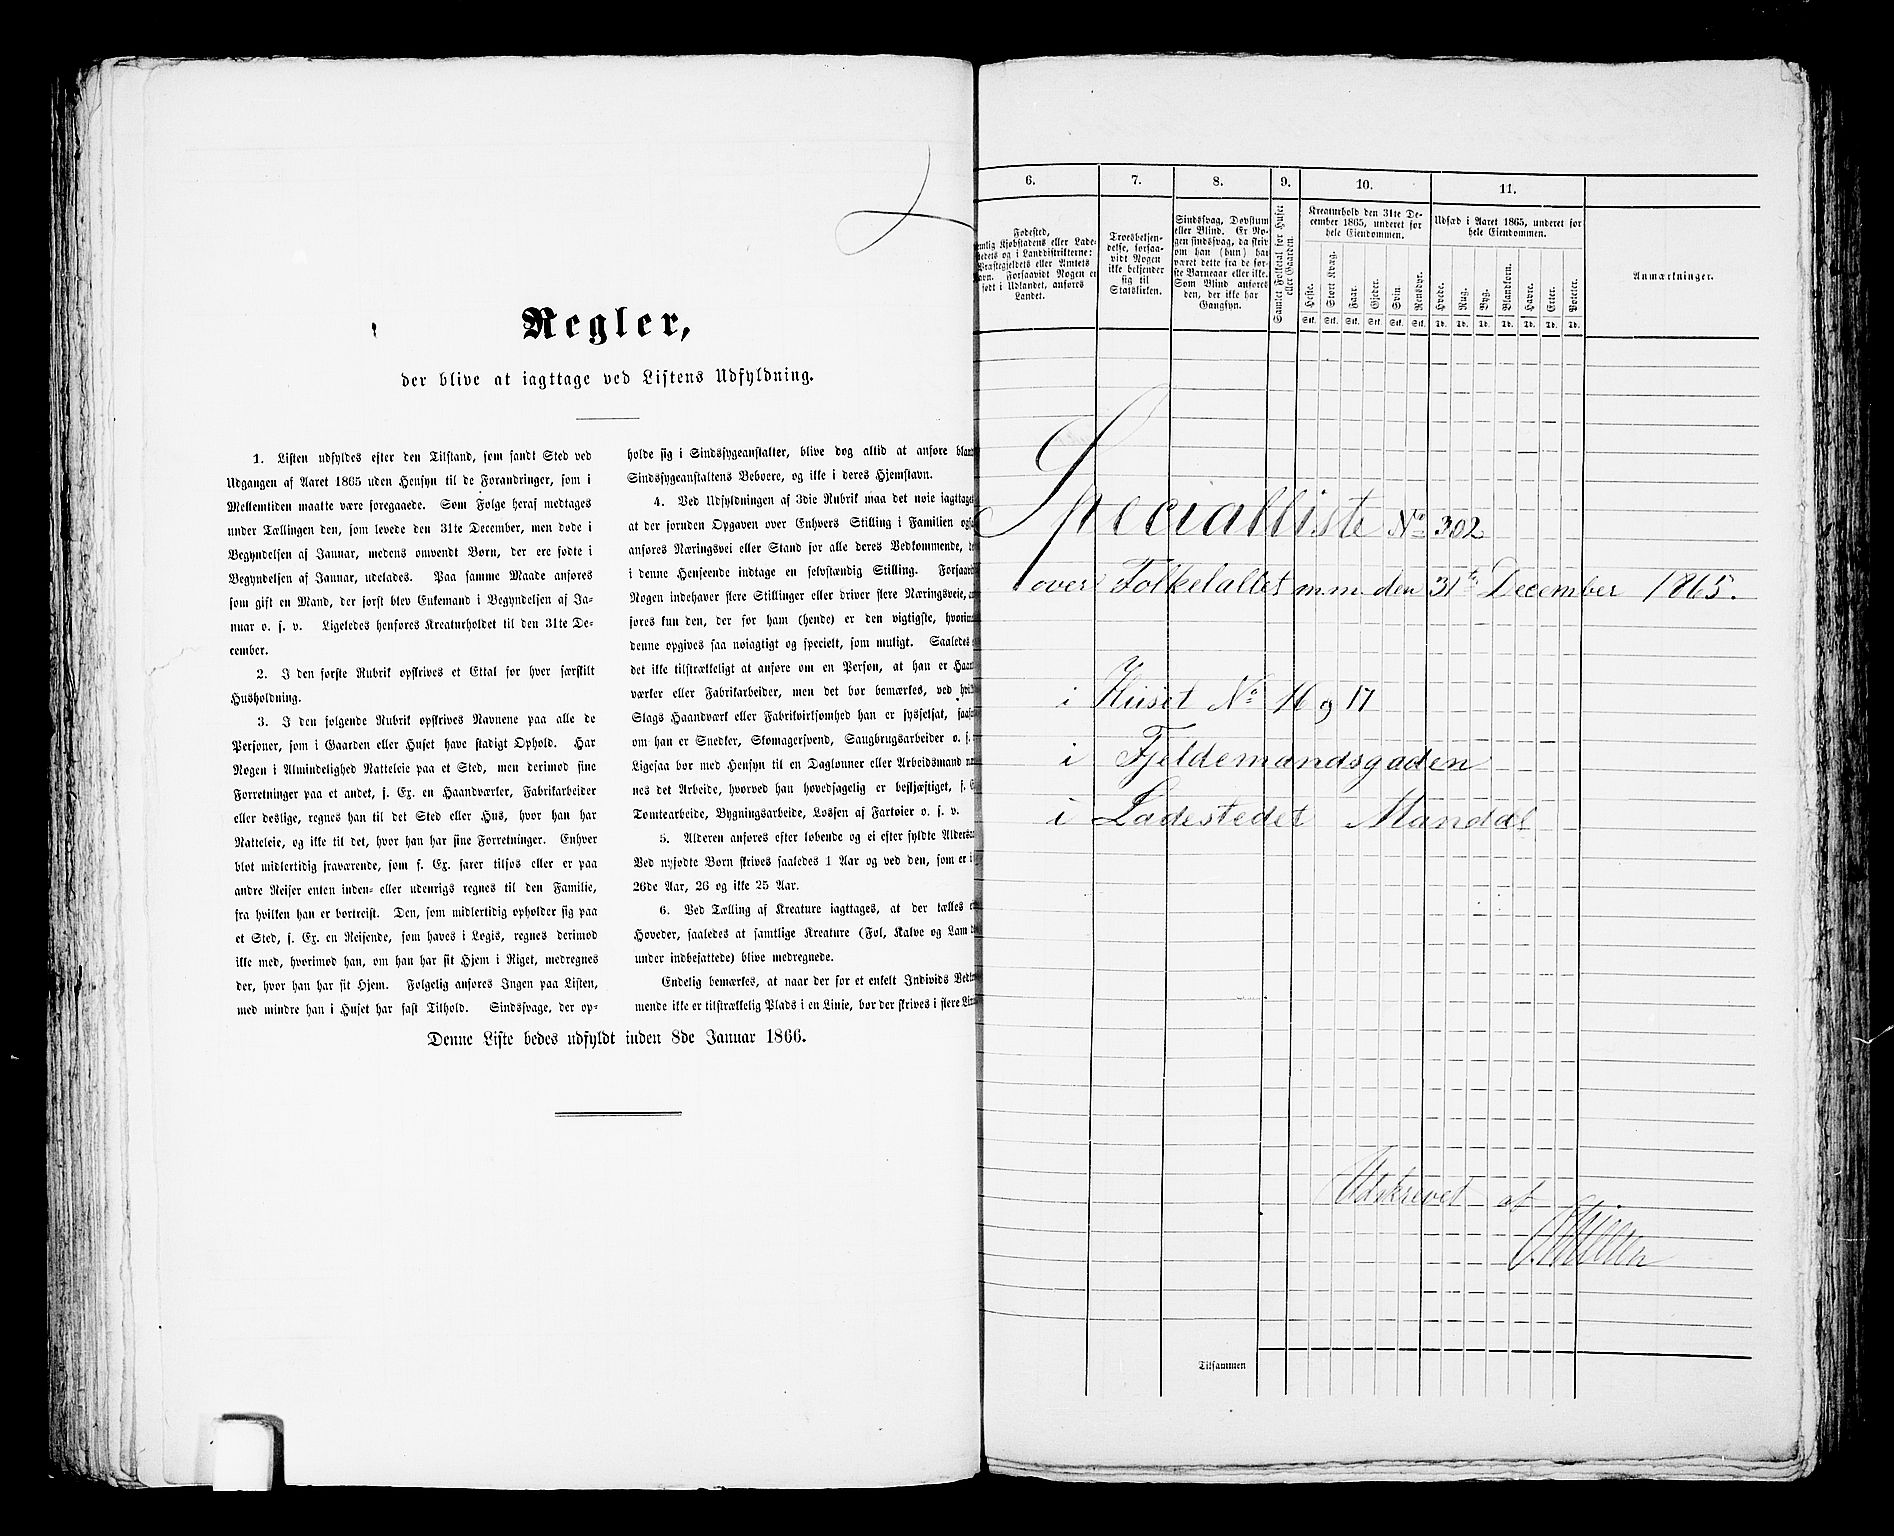 Regler,
der blive at iagttage ved Listens Udfyldning.
1. Listen udfyldes efter den Tilstand, som fandt Sted ved
Udgangen af Aaret 1865 uden Hensyn til de Forandringer, som i
Mellemtiden maatte være foregaaede. Som Følge heraf medtages
under Tællingen den, som levede den 31te December, men døde i
Begyndelsen af Januar, medens omvendt Børn, der ere fødte i
Begyndelsen af Januar, udelades. Paa samme Maade anføres
som gift en Mand, der først blev Enkemand i Begyndelsen af Ja-
nuar o. s. v. Ligeledes henføres Kreaturholdet til den 31te De-
cember.
2. I den første Rubrik opskrives et Ettal for hver særskilt
Husholdning.
3. I den følgende Rubrik opskrives Navnene paa alle de
Personer, som i Gaarden eller Huset have stadigt Ophold. Har
Nogen i Almindelighed Natteleie paa et Sted, men derimod sine
Forretninger paa et andet, s. Ex. en Haandværker, Fabrikarbeider
eller deslige, regnes han til det Sted eller Hus, hvor han har
Natteleie, og ikke til det, hvor han har sine Forretninger. Enhver
blot midlertidig fraværende, som f. Ex. farer tilsøs eller er paa
andre Reiser enten inden- eller udenrigs regnes til den Familie,
fra hvilken han er bortreist. Den, som midlertidig opholder sig paa
et Sted, s. Ex. en Reisende, som haves i Logis, regnes derimod
ikke med, hvorimod han, om han har sit Hjem i Riget, medregnes
der, hvor han har sit Hjem. Følgelig anføres Ingen paa Listen,
med mindre han i Huset har fast Tilhold. Sindssvage, der op-
holde sig i Sindssygeanstalter, blive dog altid at anføre
Sindssygeanstaltens Beboere, og ikke i deres Hjemstavn.
4. Ved Udfyldningen af 3die Rubrik maa det nøie iagttages
at der foruden Opgaven over Enhvers Stilling i Familien
anføres Næringsvei eller Stand for alle deres Vedkommende,
i denne Henseende indtage en selvstændig Stilling.
Nogen indehaver flere Stillinger eller driver flere Næringsveie,
føres kun den, der for ham (hende) er den vigtigste,
denne opgives saa nøiagtigt og specielt, som muligt. Saaledes
det ikke tilstrækkeligt at anføre om en Person, at han er
værker eller Fabrikarbeider, men det bør bemærkes, ved
Slags Haandværk eller Fabrikvirksomhed han er sysselsat,
om han er Snedker, Skomagersvend, Saugbrugsarbeider o. s.
Ligesaa bør med Hensyn til en Daglønner eller Arbeidsmand
nes det Arbeide, hvorved han hovedsagelig er beskjæftiget,
Tomtearbeide, Bygningsarbeide, Lossen af Fartøier o. s. v.
5. Alderen anføres efter løbende og ei efter fyldte
Ved nyfødte Børn skrives saaledes 1 Aar og ved den, som er i
26de Aar, 26 og ikke 25 Aar.
6. Ved Tælling af Kreature iagttages, at der tælles
Hoveder, saaledes at samtlige Kreature (Føl, Kalve og Lam
under indbefattede) blive medregnede.
Endelig bemærkes, at naar der for et enkelt Individs
mende ikke er tilstrækkelig Plads i en Linie, bør der skrives i flere
Denne Liste bedes udfyldt inden 8de Januar 1866.
6. 7. 8. 9. 10. 11.
Fødested,
Kjøbstadens eller Lade-
stedets og i Landdistrikterne:
Præstegjeldets eller Amtets
Navn. Forsaavidt Nogen er
født i Udlandet, anføres
Landet.
Troesbekjen-
delse, forsaa-
vidt Nogen
ikke bekjender
sig til
Statskirken.
Sindssvag, Døvstum
eller Blind. Er No-
gen sindssvag, da skriv
om han (hun) har
været dette fra de før-
ste Barneaar eller ikke.
Som Blind anføres
den, der ikke har
Gangsyn.
Samlet Folketal for Huset
eller Gaarden.
Kreaturhold den 31te De-
cember 1865, underet for
hele Eiendommen.
Heste. Stort Kvæg. Faar. Gjeder. Svin. Rensdyr.
Stk. Stk. Stk. Stk. Stk. Stk.
Udsæd i Aaret 1865, underet for
hele Eiendommen.
Hvede. Rug. Byg. Blandkorn. Havre. Erter. Poteter.
Td. Td. Td. Td. Td. Td. Td.
Anmærkninger.
Specialliste No 302
over Folketallet m.m. den 31te December 1865.
i Huset No 16 og 17
i Fjeldemandsgaden
i Ladestedet Mandal
Udskrevet af
Tilsammen